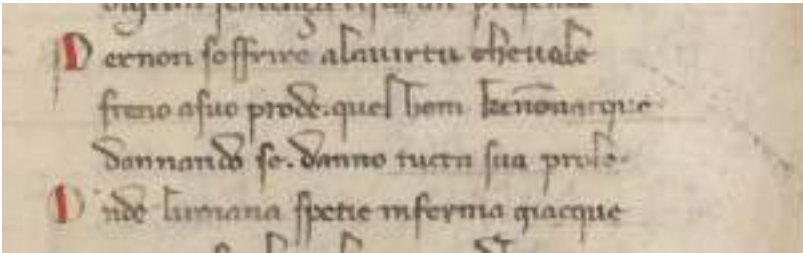 Per non soffrire alavirtu chevole
freno asuo prode. quel hom kenōnacque
dannando se. danno tucta sua prole.
Onde lumana spetie inferma giacque